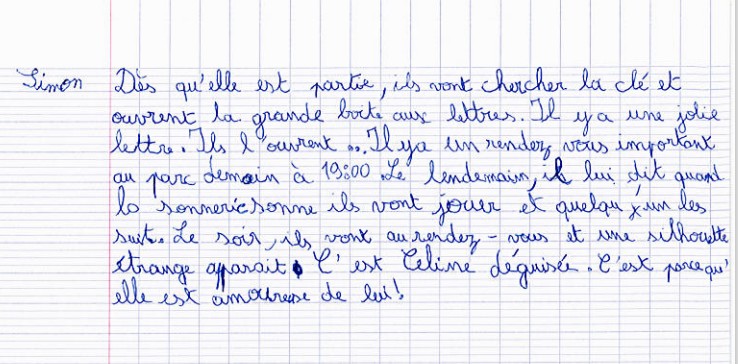 Simon Dès qu'elle est partie, ils vont chercher la clé et
ouvrent la grande boite aux lettres. Il y a une jolie
lettre. Ils l'ouvrent... Il y a un rendez vous important
au parc demain à 19:00. Le lendemain, il lui dit quand
la sonnerie sonne ils vont jouer et quelqu'un les
suit. Le soir, ils vont au rendez-vous et une silhouette
étrange apparait. C'est Celine déguisée. C'est parce qu'
elle est amoureuse de lui!